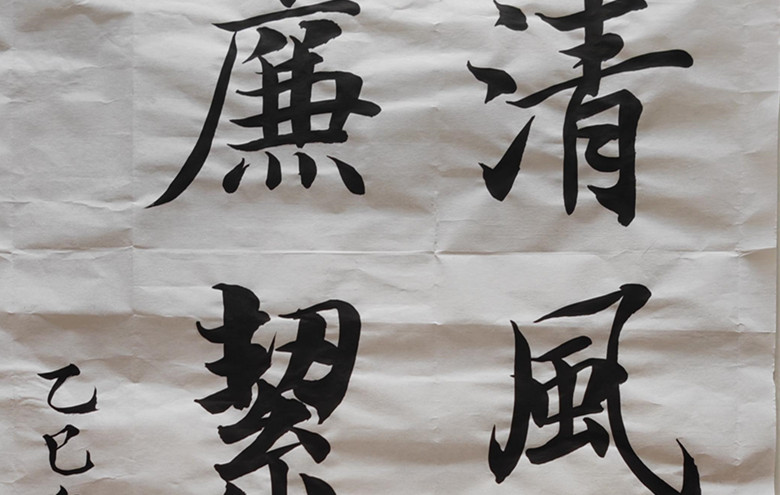 清風
廉絜
乙巳